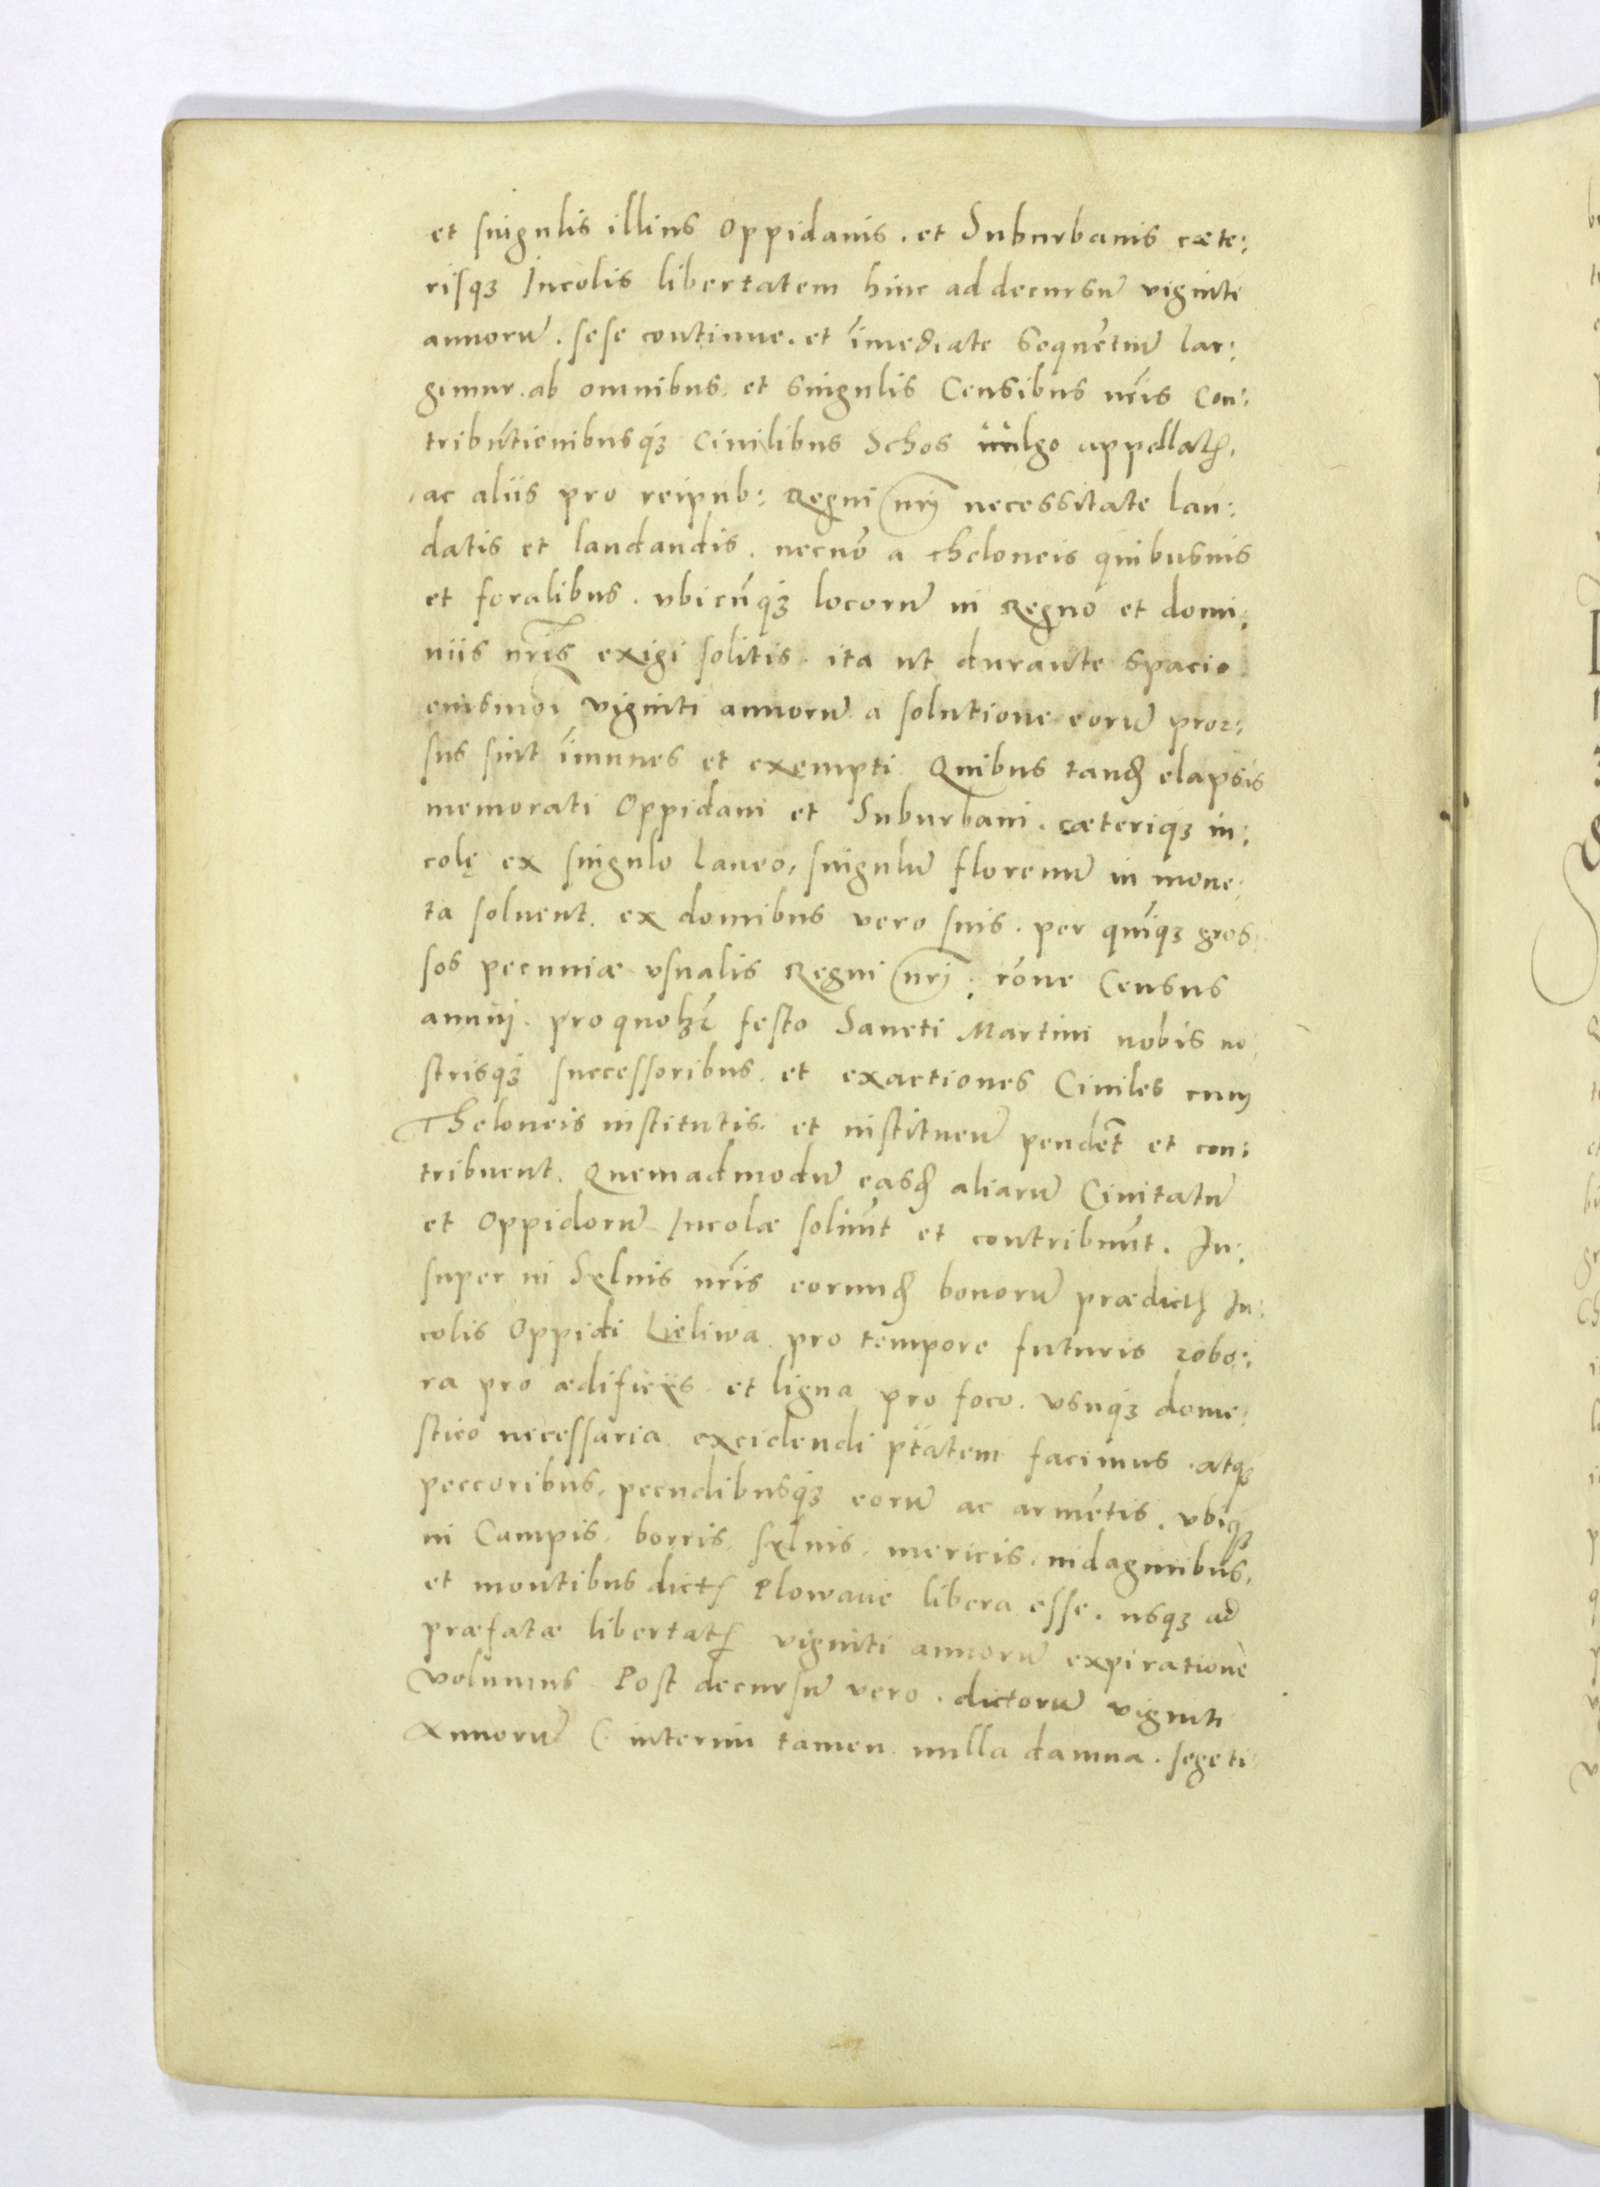 et singulis illius Oppidanis. et Suburbanis cæte:
risq₃ Incolis libertatem hinc ad decursū viginti
annorū. sese continue. et im̄ediate sequētiū lar:
gimur. ab omnibus et singulis Censibus nr̄is Con:
tributionibusq₃ Ciuilibus Schos uulgo appellatꝭ.
ac aliis pro reipub: Regni nrī necessitate lau:
datis et laudandis. necnō a theloneis quibusuis
et foralibus. vbicūq₃ locorū in Regno et domi:
niis nr̄is exigi solitis. ita ut durante spacio
eiusmōi viginti annorū a solutione eorū pror:
sus sint im̄unes et exempti Quibus tandꝫ elapsis
memorati Oppidani et Suburbani. cæteriq₃ in:
colę ex singulo laneo, singulū florenū in mone:
ta soluent. ex domibus vero suis. per quīq₃ gros:
sos pecuniæ vsualis Regni nrī: rōne Census
annui. pro quolꝫ festo Sancti Martini nobis no:
strisq₃ successoribus. et exactiones Ciuiles cum
Theloneis institutis. et instituen̄ pendēt et con:
tribuent. Quemadmodū easdꝫ aliarū Ciuitatū
et Oppidorū Incolæ soluūt et contribuūt. In:
super in Syluis nr̄is eorundꝫ bonorū prædictꝭ In:
colis Oppidi Lieliwa pro tempore futuris robo:
ra pro ædificiis et ligna pro foco. vsuq₃ dome:
stico necessaria excidendi ptātem facimus. atq₃
peccoribus, pecudibusq₃ eorū ac armētis. vbiq₃
in Campis, borris, syluis, mericis, indaginibus,
et montibus dictꝭ Plowanie libera esse. usq₃ ad
præfatæ libertatꝭ viginti annorū expirationē
volumus Post decursū vero. dictorū viginti
Annorū (interim tamen nulla damna. segeti